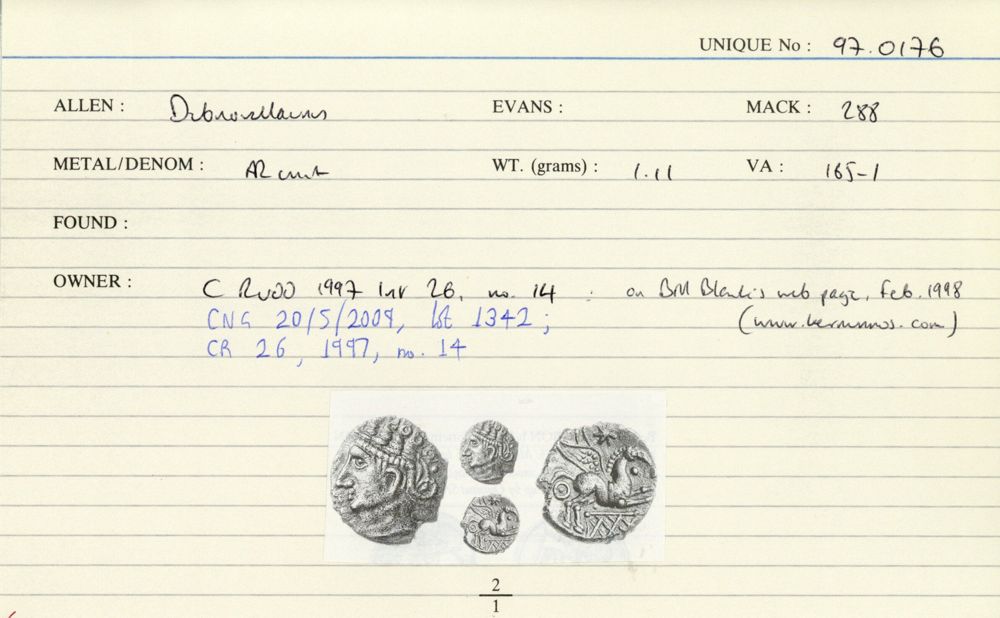 UNIQUE No : 97.0176
ALLEN : Dubnovellaunus EVANS : MACK : 288
METAL/DENOM : AR unit WT. (grams) : 1.11 VA : 165-1
FOUND :
OWNER : C RUDD 1997 list 26, no. 14 : on Bill web page, Feb. 1998
CNG 20/5/2009, lot 1342 ; (www.kernunnos.com)
CR 26, 1997, no. 14
2
1